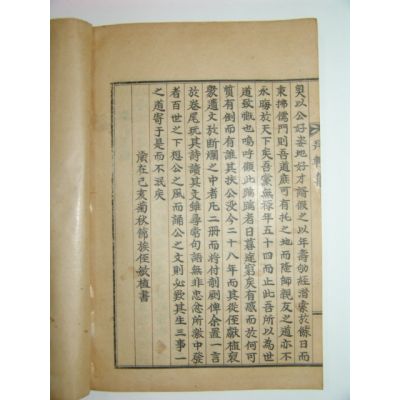 奐以公好姿地好才諝假之以年壽劬經潛素於餘日而
東拂儒門則吾道庶可有托之地而隆師親友之道亦不
永晦於天下矣吾黨無祿年五十四而止此吾所以為世
道致慨也嗚呼儼也踽踽者日暮途窮矣有感而故何可
質有倒而有誰其扶公沒今二十八年而其從侄獻植裒
聚遺文於斷爛之中者凡二冊而將付剞劂俾余置一言
於卷尾玩其詩讀其文雖尋常句語無非忠忿所激中發
者百世之下想公之風而誦公之文則必致其生三事一
之道寄于是而不泯矣
歲在己亥菊秋節族侄敏植書